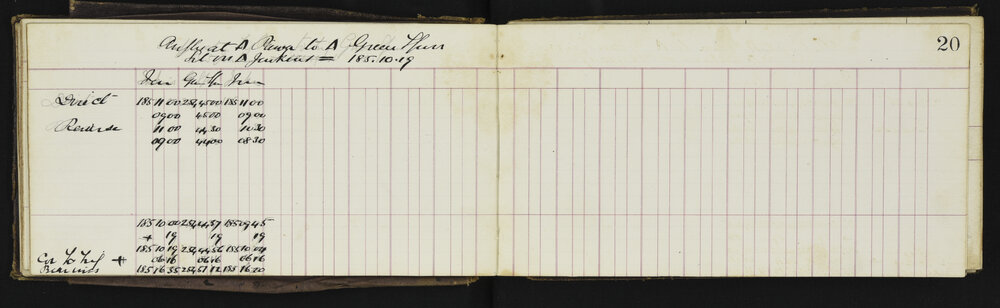 20
Angle at Δ to Δ Green
Set on Δ Jenkins = 185.10.19
Direct 185 11 00 254 45 00 185 11 00
09 00 45 00 09 00
Reverse 11 00 44 30 10 30
09 00 44 00 08 30
185 10 00 254 44 37 185 09 45
+ 19 19 19
185 10 19 254 44 56 185 10 04
Cor to Trig + 06 16 06 16 06 16
Bearings 185 16 35 254 51 12 185 16 20